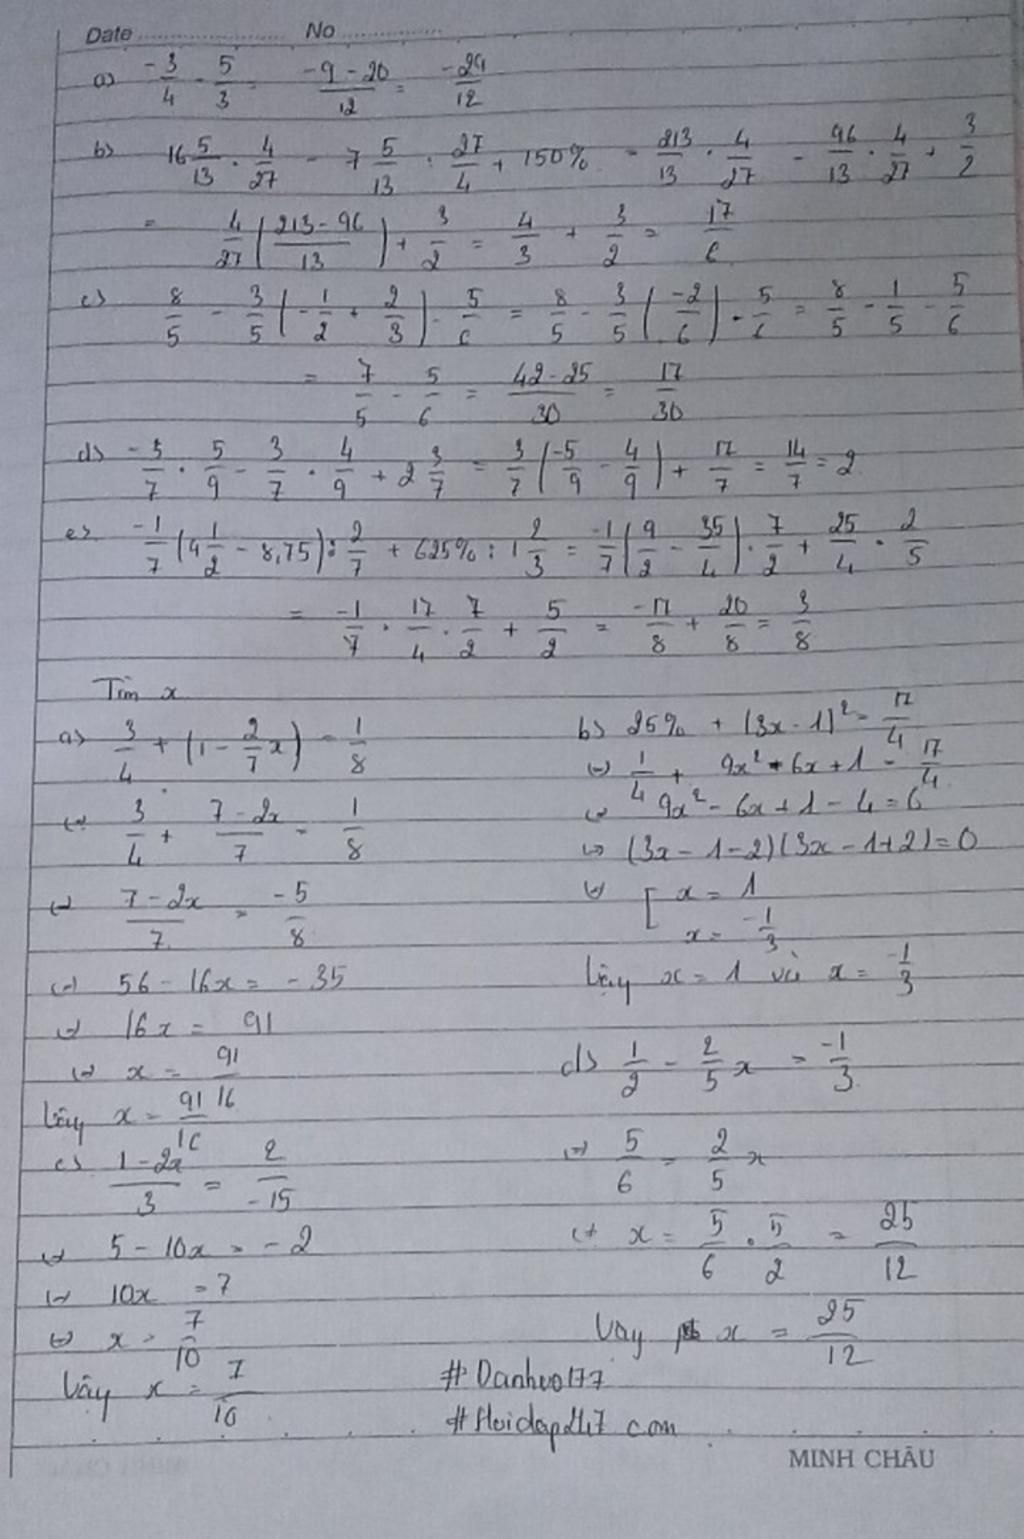 Date ........................ No ..................
a) -3/4 - 5/3 = (-9-20)/12 = -29/12
b) 16 5/13 . 4/27 - 7 5/13 : 27/4 + 150% = 213/13 . 4/27 - 96/13 . 4/27 + 3/2
= 4/27 ((213-96)/13) + 3/2 = 4/3 + 3/2 = 17/6
c) 8/5 - 3/5 (-1/2 + 2/3) - 5/6 = 8/5 - 3/5 (-2/6) - 5/6 = 8/5 - 1/5 - 5/6
= 7/5 - 5/6 = (42-25)/30 = 17/30
d) -3/7 . 5/9 - 3/7 . 4/9 + 2 3/7 = 3/7 (-5/9 - 4/9) + 17/7 = 14/7 = 2
e) -1/7 (4 1/2 - 8,75) : 2/7 + 625% : 1 2/3 = -1/7 (9/2 - 35/4) . 7/2 + 25/4 . 2/5
= -1/7 . 17/4 . 7/2 + 5/2 = -17/8 + 20/8 = 3/8
Tìm x
a) 3/4 + (1 - 2/7 x) = 1/8
(=) 3/4 + (7-2x)/7 = 1/8
(=) (7-2x)/7 = -5/8
(=) 56 - 16x = -35
(=) 16x = 91
(=) x = 91/16
Vậy x = 91/16
b) 25% + (3x - 1)² = 17/4
(=) 1/4 + 9x² - 6x + 1 = 17/4
(=) 9x² - 6x + 1 - 4 = 0
(=) (3x - 1 - 2)(3x - 1 + 2) = 0
(=) [ x = 1
x = -1/3
Vậy x = 1 và x = -1/3
c) (1-2x)/3 = 2/-15
(=) 5 - 10x = -2
(=) 10x = 7
(=) x = 7/10
Vậy x = 7/10
d) 1/2 - 2/5 x = -1/3
(=) 5/6 = 2/5 x
(=) x = 5/6 . 5/2 = 25/12
Vậy x = 25/12
#Danhvo177
#Hoidap247 com
MINH CHÂU